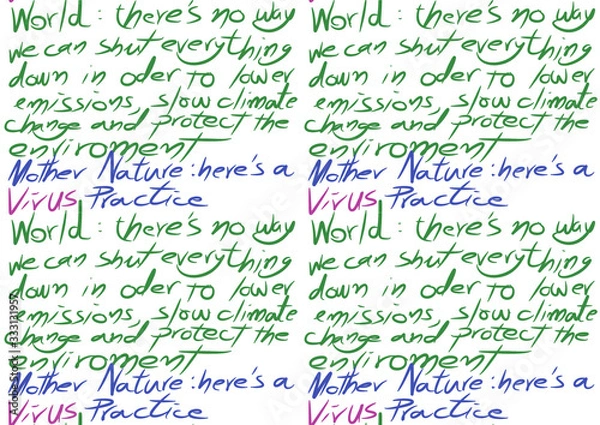 World : there's no way World : there's no way
we can shut everything we can shut everything
down in oder to lower down in oder to lower
emissions, slow climate emissions, slow climate
change and protect the change and protect the
enviroment enviroment
Mother Nature : here's a Mother Nature : here's a
Virus Practice Virus Practice
World : there's no way World : there's no way
we can shut everything we can shut everything
down in oder to lower down in oder to lower
emissions, slow climate emissions, slow climate
change and protect the change and protect the
enviroment enviroment
Mother Nature : here's a Mother Nature : here's a
Virus Practice Virus Practice
Adobe Stock | #333131957